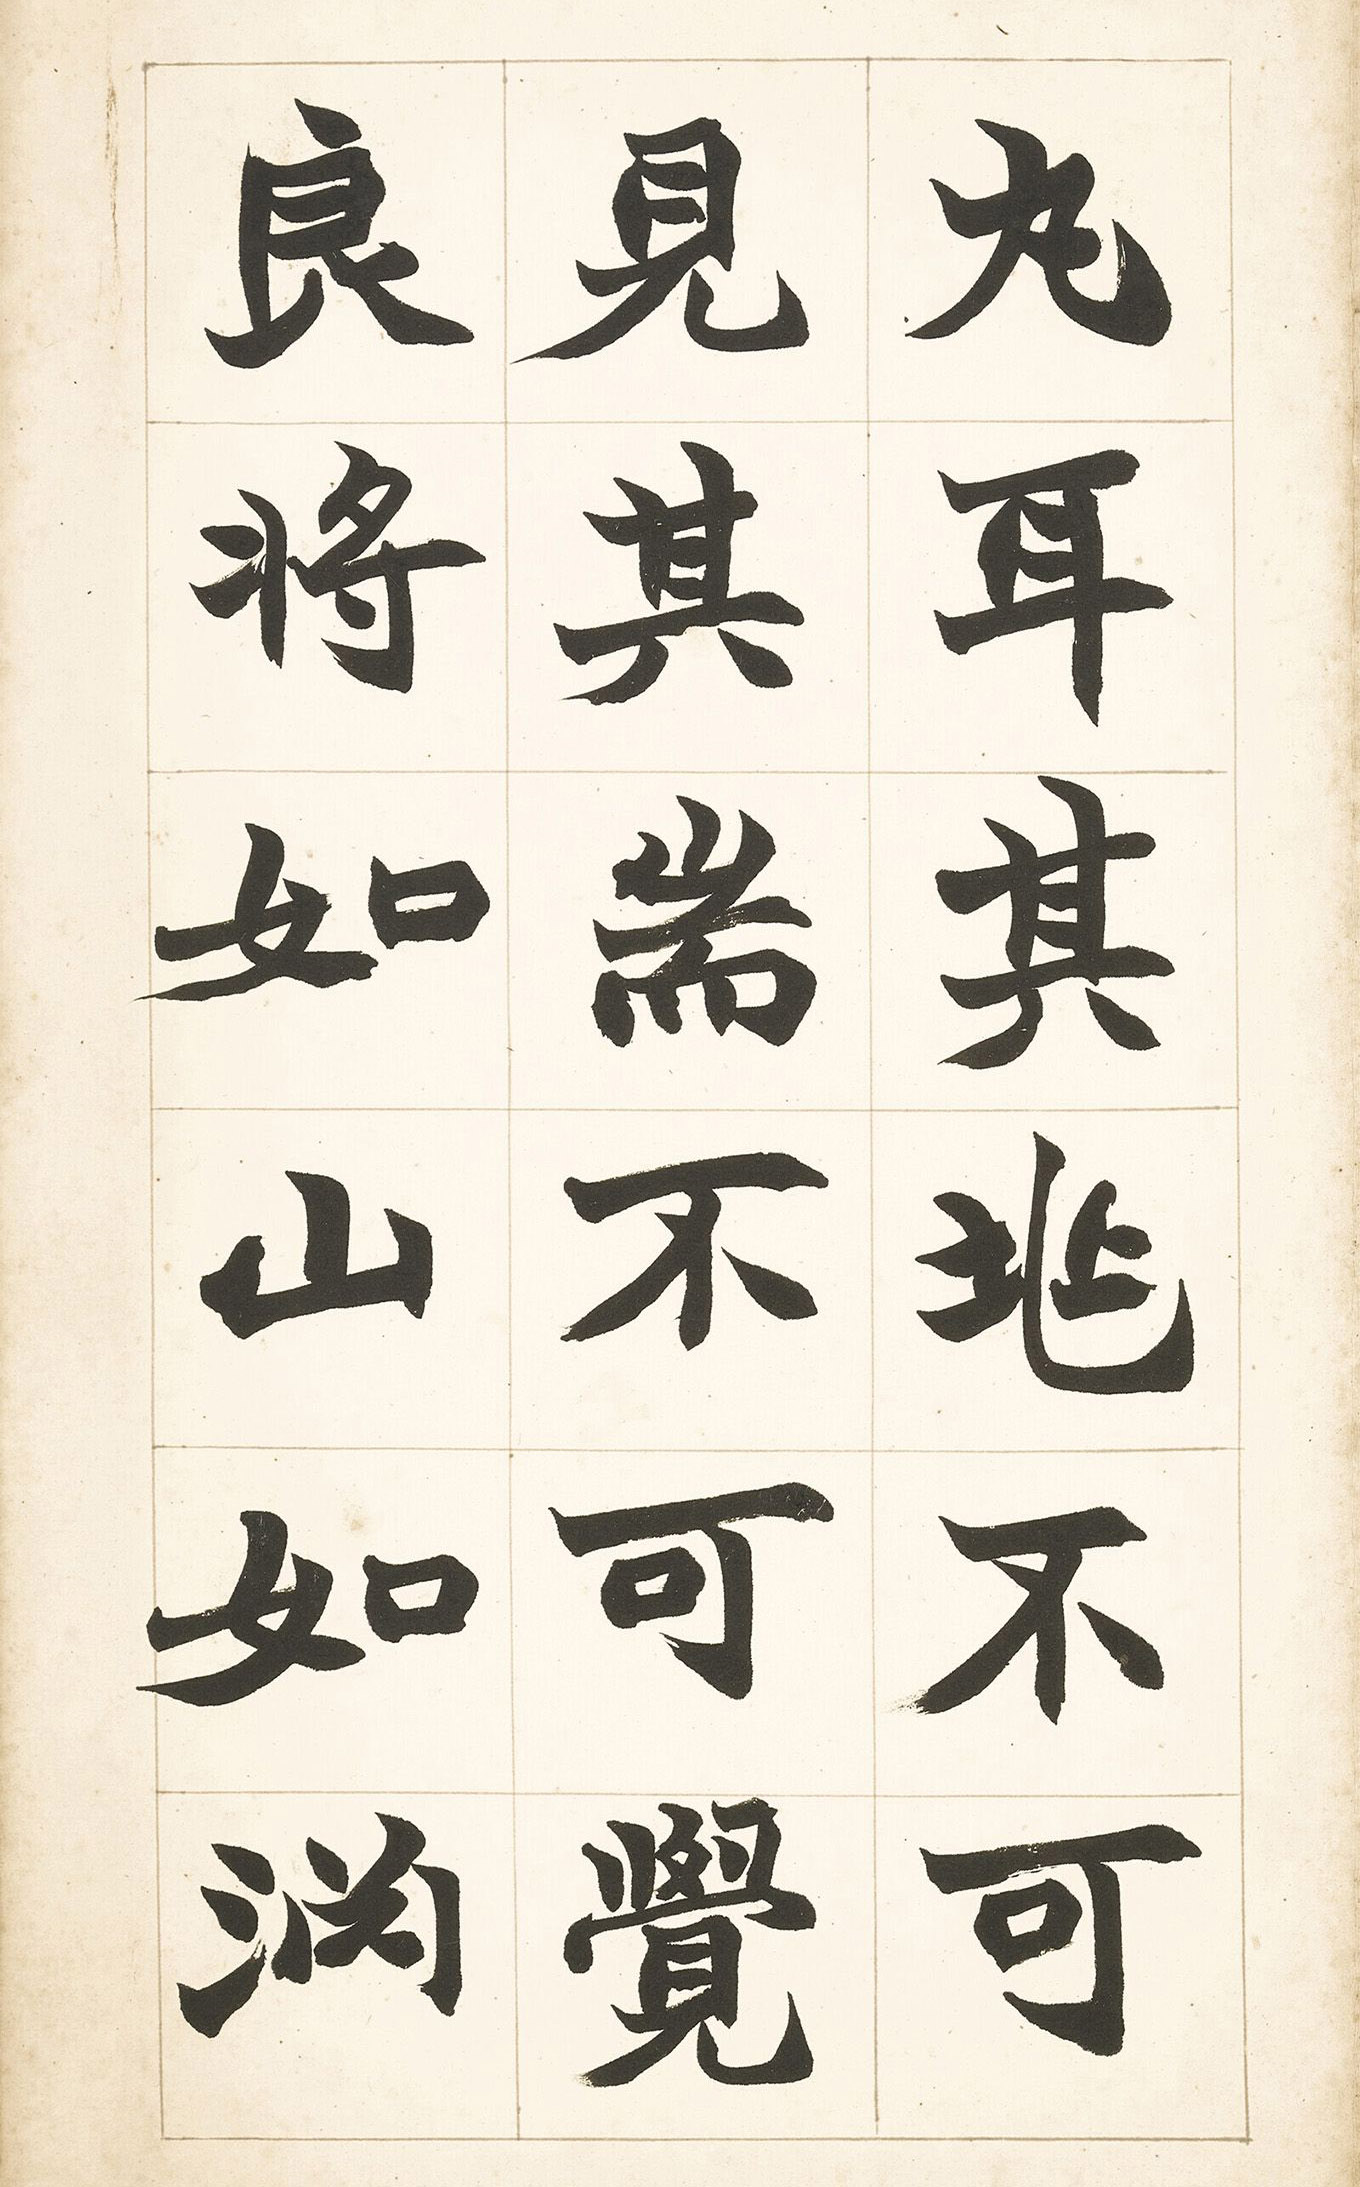 丸耳其兆不可
見其耑不可覺
良將如山如渊